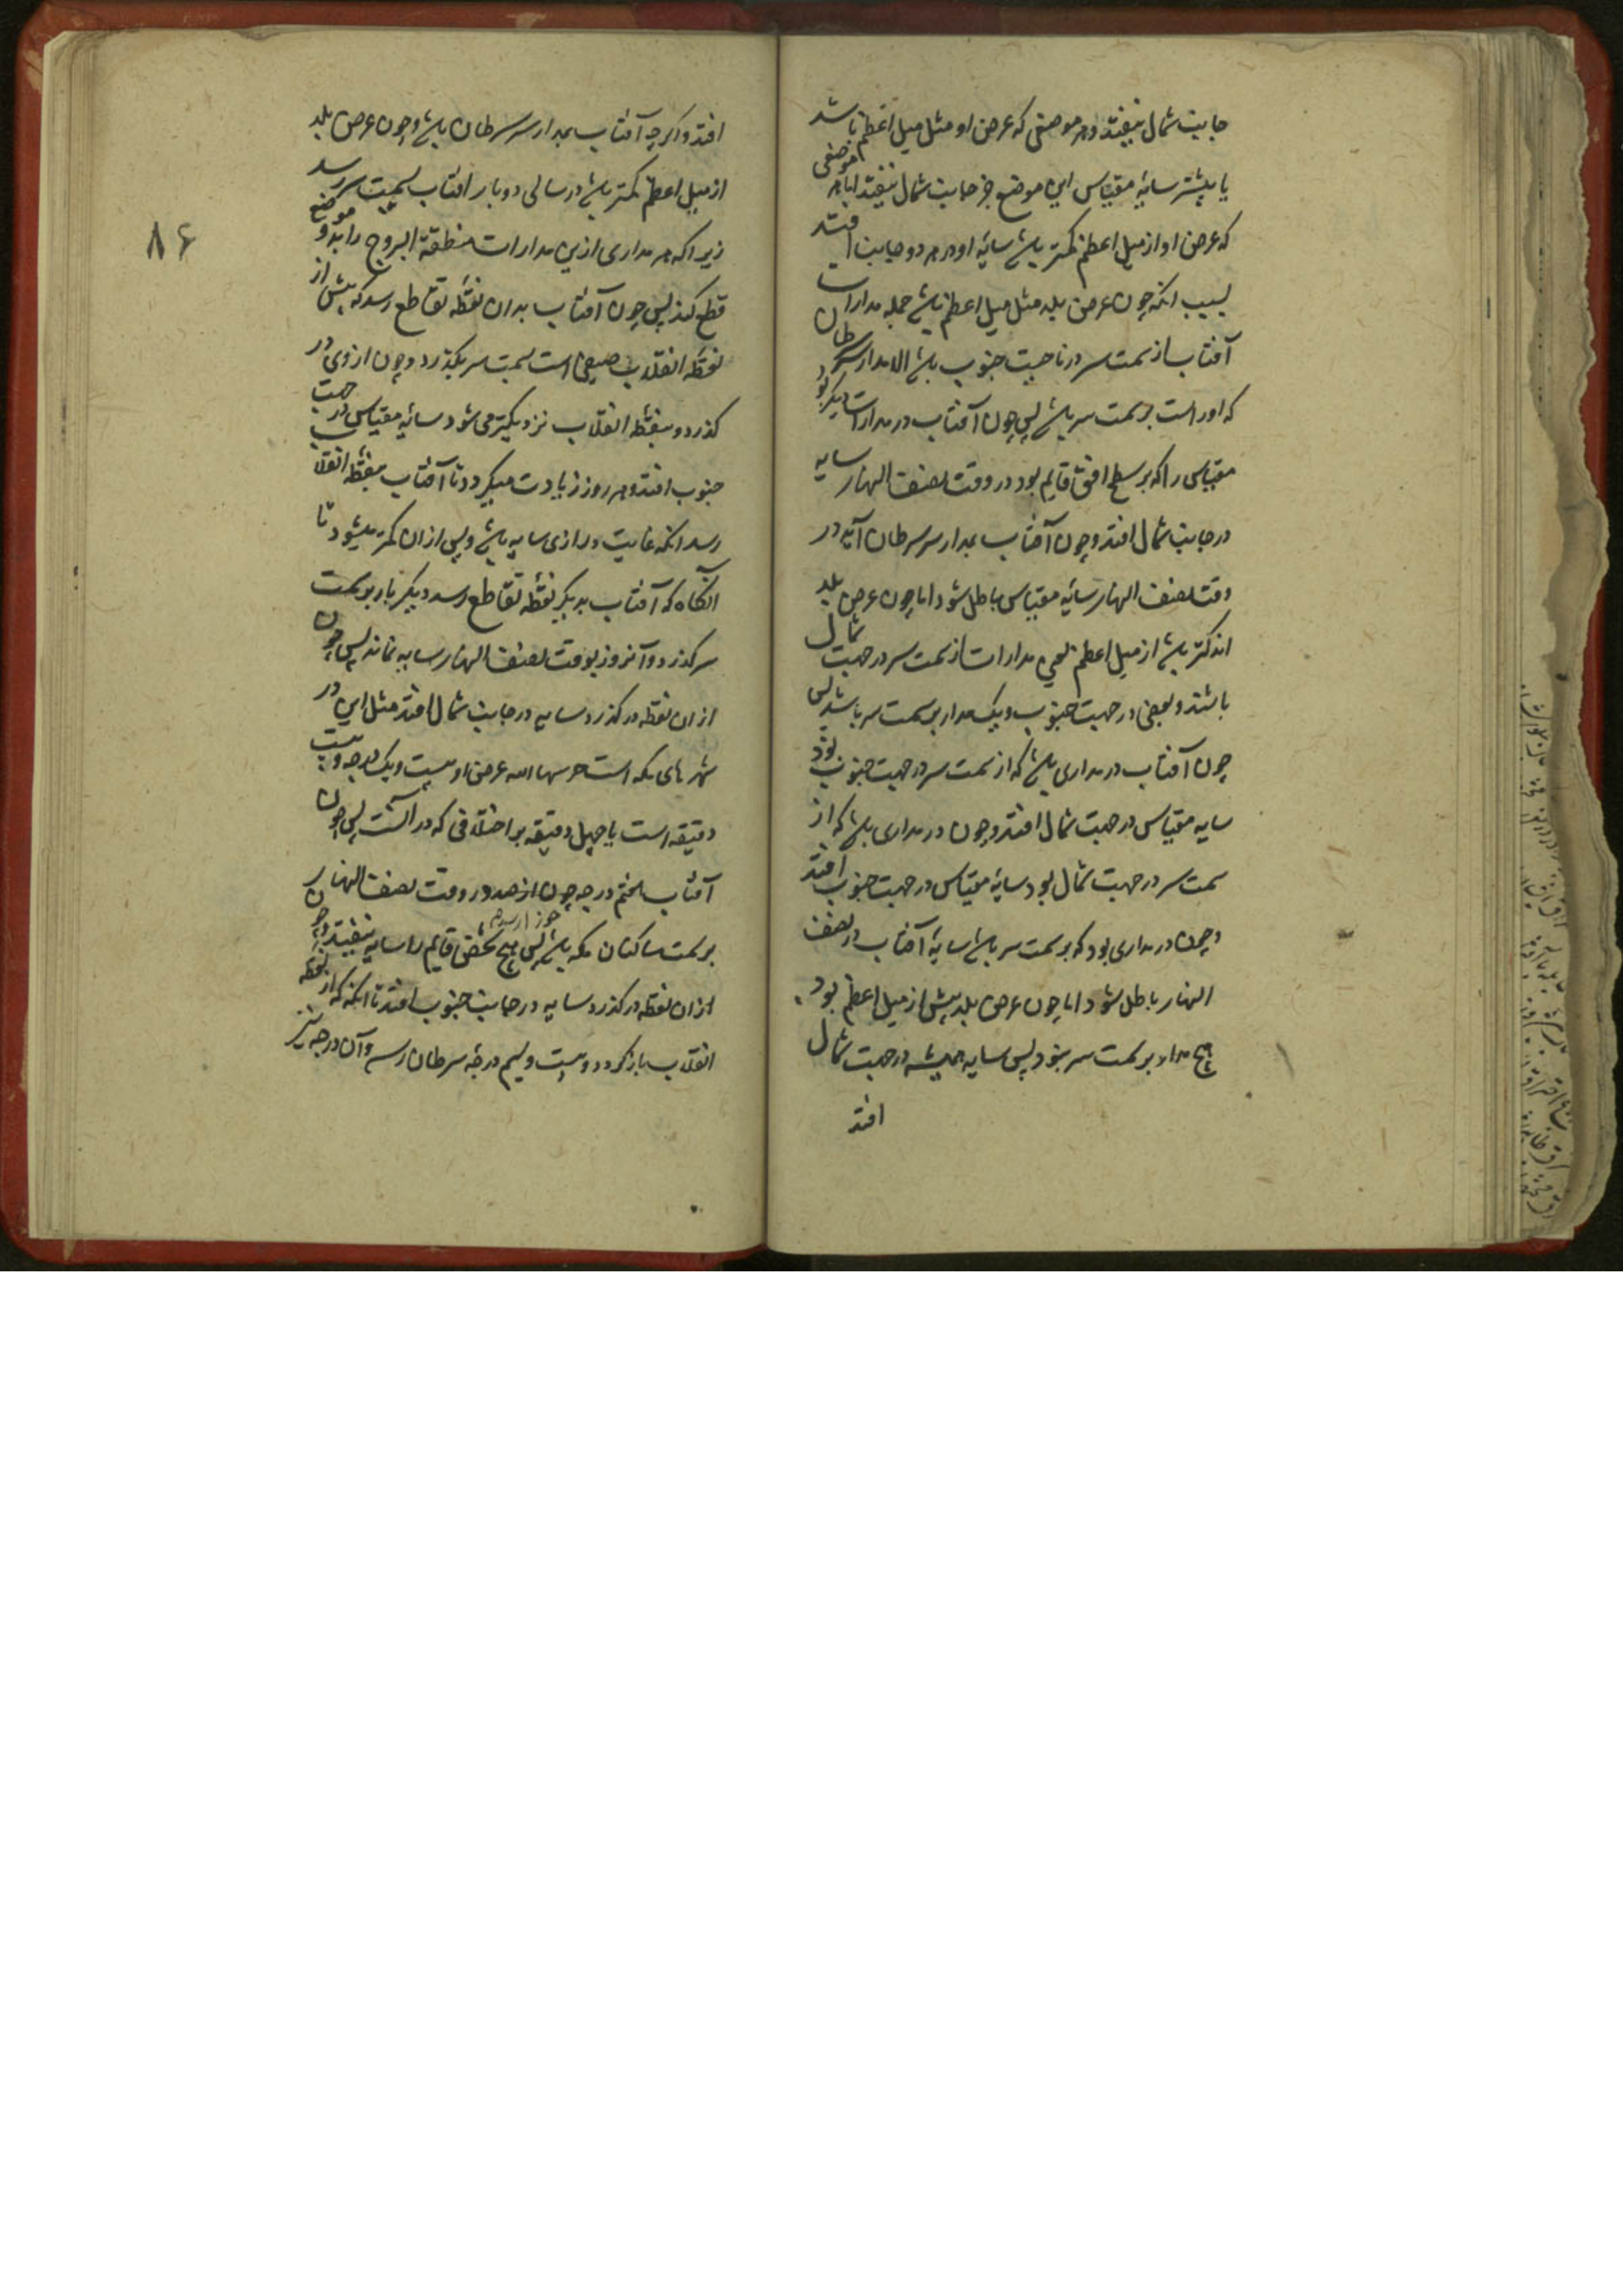 جانب شمال نیفتد و هر موضعی که عرض او مثل میل اعظم باشد
یا بیشتر سایهٔ مقیاس این موضع جز جانب شمال نیفتد اما هر موضعی
که عرض او از میل اعظم کمتر باشد سایهٔ او در هر دو جانب افتد
بسبب انکه چون عرض بلد مثل میل اعظم باشد جمله مدارات
آفتاب از سمت سر در ناحیت جنوب باشد الا مدار سر سرطان
که او راست بر سمت سر باشد پس چون آفتاب در مدارات دیگر بود
مقیاس را که بر سطح افق قایم بود در وقت نصف النهار سایه
در جانب شمال افتد و چون آفتاب بمدار سر سرطان آید در
وقت نصف النهار سایهٔ مقیاس باطل شود اما چون عرض بلد
اندکتر باشد از میل اعظم بعضی مدارات از سمت سر در جهت شمال
باشند و بعضی در جهت جنوب و یک مدار بر سمت سر باشد پس
چون آفتاب در مداری باشد که از سمت سر در جهت جنوب بود
سایه مقیاس در جهت شمال افتد و چون در مداری باشد که از
سمت سر در جهت شمال بود سایهٔ مقیاس در جهت جنوب افتد
و چون در مداری بود که بر سمت سر باشد سایهٔ آفتاب در نصف
النهار باطل شود اما چون عرض بلد بیش از میل اعظم بود
هیچ مدار بر سمت سر نبود پس سایه همیشه در جهت شمال
افتد
۸۶
افتد و اکرچه آفتاب بمدار سر سرطان باشد و چون عرض بلد
از میل اعظم کمتر باشد در سالی دو بار افتاب بسمت سر رسد
زیرا که هر مداری ازین مدارات منطقة البروج را بدو موضع
قطع کند پس چون آفتاب بدان نقطه تقاطع رسد که پیش از
نقطه انقلاب صیفی است بسمت سر بکذرد و چون از وی در
کذرد و بنقطه انقلاب نزدیکتر می شود سایهٔ مقیاس در جهت
جنوب افتد و هر روز زیادت میکردد تا آفتاب بنقطه انقلاب
رسد انکه غایت درازی سایه باشد و پس از ان کمتر میشود تا
آنکاه که آفتاب بدیکر نقطه تقاطع رسد دیکر بار بر سمت
سر کذرد و آنروز بوقت نصف النهار سایه نماند پس چون
ازان نقطه در کذرد سایه در جانب شمال افتد مثل این در
شهرهای مکه است حرسها الله عرض او بیست ویک درجه و بیست
دقیقه است یا چهل دقیقه بر اختلافی که در آنست پس چون
آفتاب بهفتم درجه جوزا رسد در وقت نصف النهار
بر سمت ساکنان مکه باشد پس هیچ شخص قایم را سایه نیفتد و چون
ازان نقطه در کذرد سایه در جانب جنوب افتد تا انکه که از نقطه
انقلاب باز کردد و بیست و سیم درجهٔ سرطان رسد و آن درجه نیز